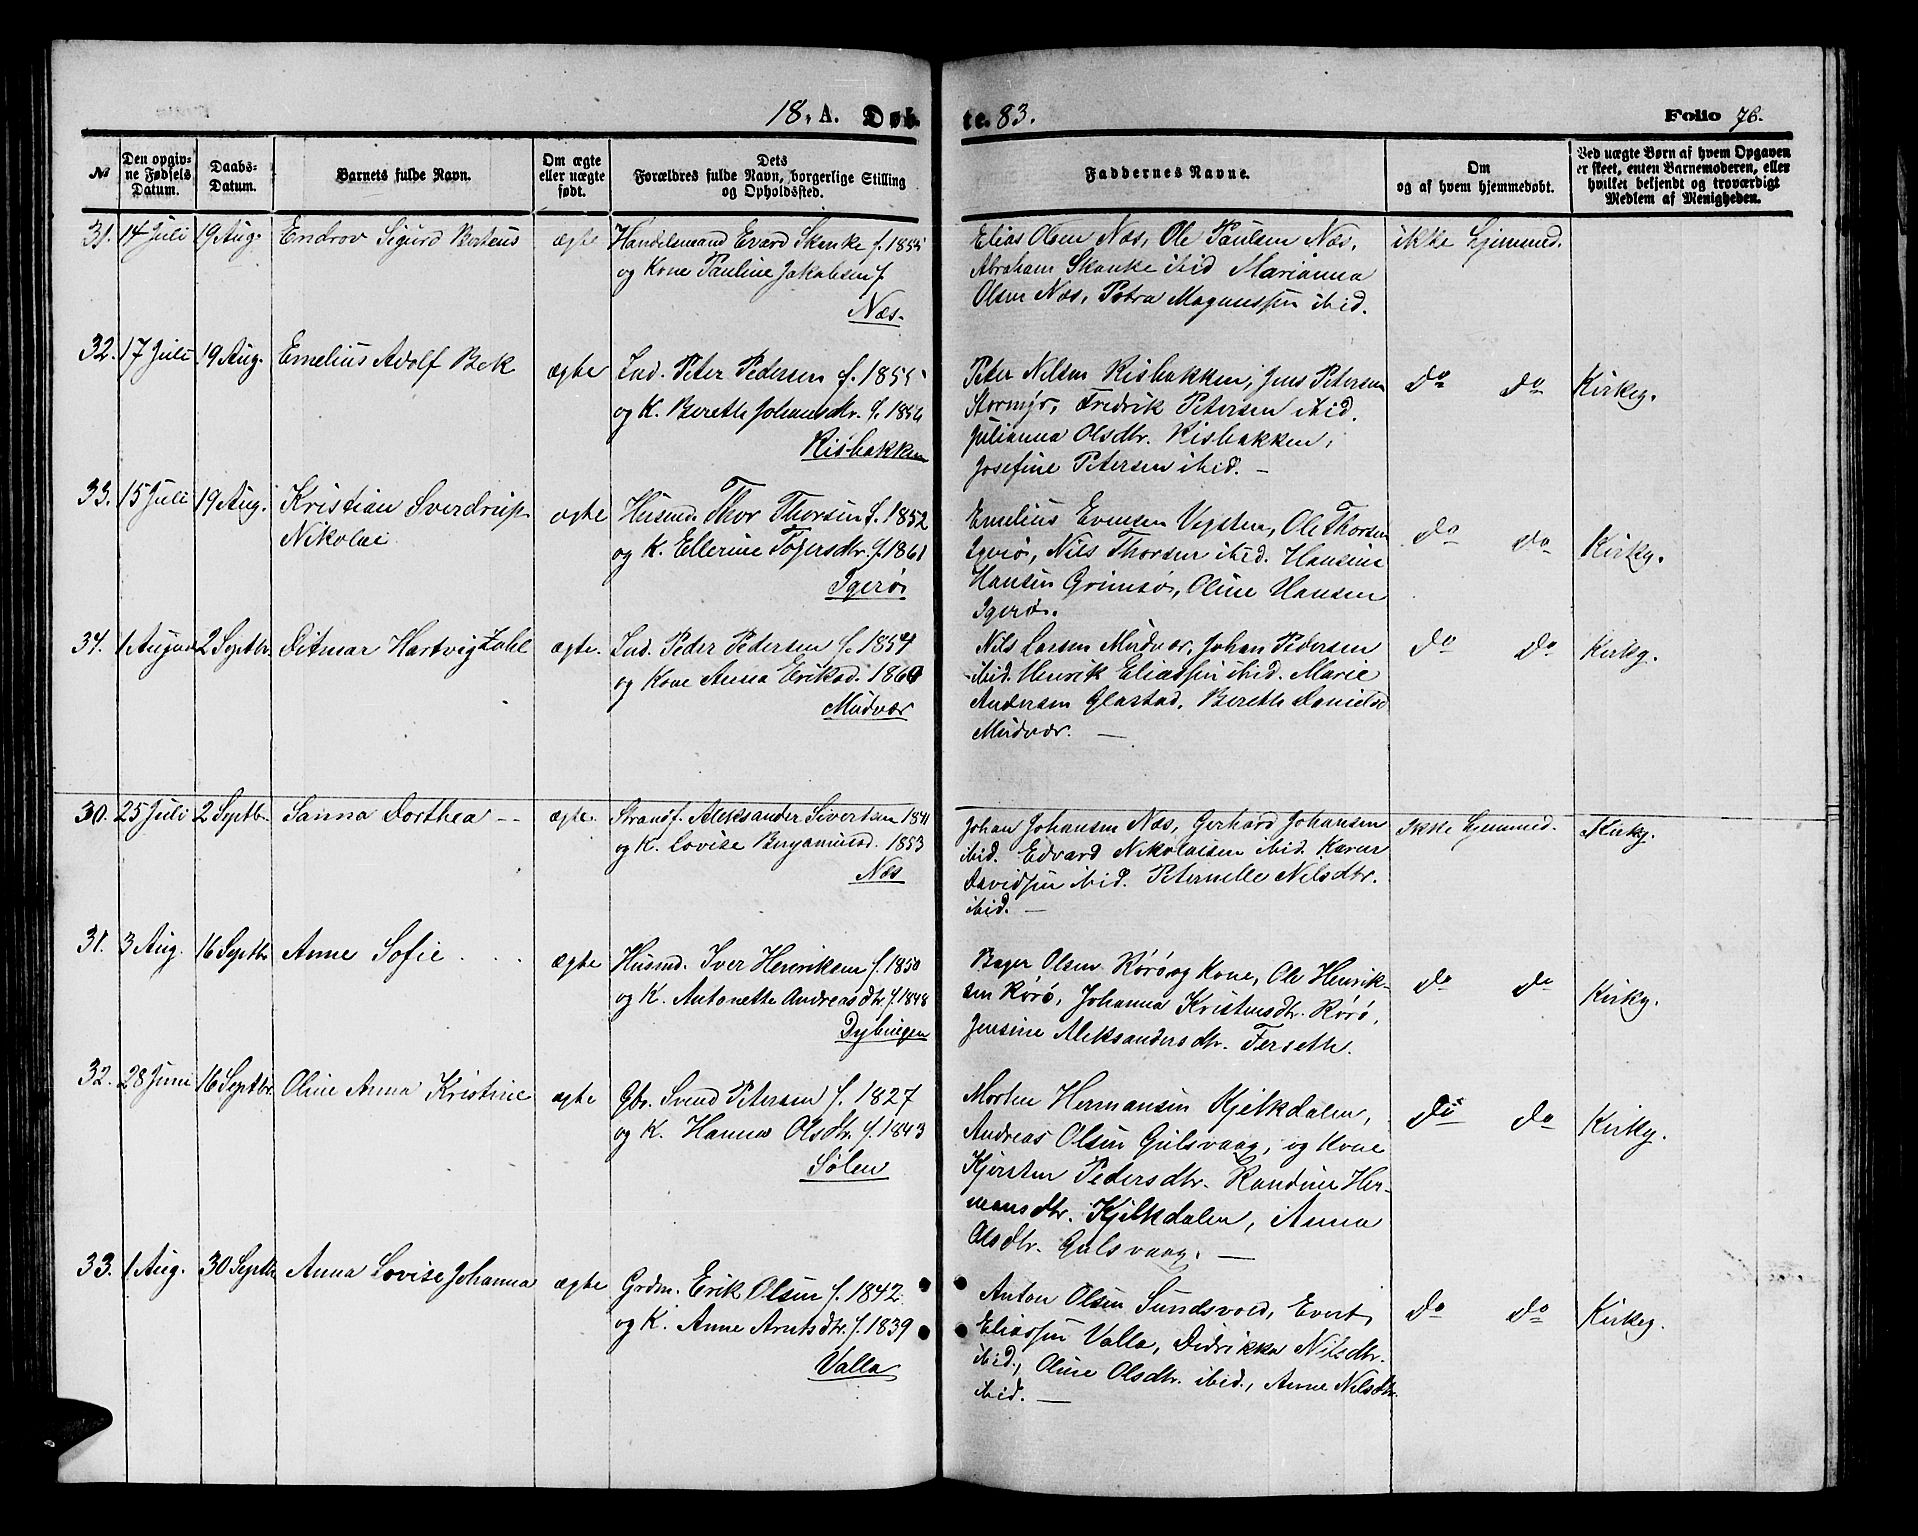 18. A. Døb- te. 83. Folio 76.
№
Den opgivne Fødsels Datum.
Daabs-Datum.
Barnets fulde Navn.
Om ægte eller uægte født.
Dets Forældres fulde Navn, borgerlige Stilling og Opholdssted.
Faddernes Navne.
Om og af hvem hjemmedøbt.
Ved uægte Børn af hvem Opgaven er skeet, enten Barnemoderen, eller hvilket bekjendt og troværdigt Medlem af Menigheden.
31. 14 Juli 19 Aug. Endrov Sigurd Berteus ægte
Handelsmand Evard Skanke f. 1855
og Kone Pauline Jakobsen f
Næs.
Elias Olsen Næs, Ole Paulsen Næs,
Abraham Skanke ibid Marianna
Olsen Næs, Petra Magnussen ibid.
ikke hjemmed.
32. 17 Juli 19 Aug. Emelius Adolf Bek ægte
Ind. Peter Pedersen f. 1855
og K. Bereth Johansdtr. f. 1856
Risbakken
Peter Nilsen Risbakken, Jens Petersen
Stormyr, Fredrik Petersen ibid.
Julianna Olsdtr. Risbakken,
Josefine Petersen ibid. —
Do Do Kirkeg.
33. 15 Juli 19 Aug. Kristian Sverdrup
Nikolai
ægte
Husmd. Thor Thorsen f. 1852
og K. Ellerine Tojersdtr. f. 1861
Igerø
Emelius Evensen Vegsten, Ole Thorsen
Igerø, Nils Thorsen ibid. Hansine
Hansen Grimsø, Oline Hansen
Igerø.
Do Do Kirkg.
34. 1 August 2 Septbr. Ditmar Hartvig Zahl ægte.
Ind. Peder Pedersen f. 1854
og Kone Anna Eriksd. 1860
Mudvær
Nils Larsen Mudvær, Johan Pedersen
ibid. Henrik Eliassen ibid. Marie
Andersen Glastad, Bereth Danielsd
Mudvær. —
Do Do Kirkg.
30. 25 Juli 2 Septbr. Sanna Dorthea -- ægte.
Strandf. Aleksander Sivertsen 1841
og K. Lovise Benjaminsd. 1853
Næs
Johan Johansen Næs, Gerhard Johansen
ibid. Edvard Nikolaisen ibid. Karen
Davidsen ibid. Peternelle Nilsdtr.
ibid. —
Ikke hjemmed. Kirkg.
31. 3 Aug. 16 Septbr Anne Sofie ægte
Husmd. Iver Henriksen f. 1850
og K. Antonette Andreasdtr f. 1848
Dybingen
Bager Olsen Rørø og Kone, Ole Henrik-
sen Rørø, Johanna Kristensdtr. Rørø,
Jensine Aleksandersdtr. Ferseth.
Do Do Kirkg.
32. 28 Juni 16 Septbr Oline Anna Kristine ægte
Gbr. Svend Petersen f. 1827
og K. Hanna Olsdtr. f. 1843
Sølen
Morten Hermansen Kjelkdalen,
Andreas Olsen Gulsvaag, og Kone
Kjersten Pedersdtr. Randine Her-
mansdtr. Kjelkdalen, Anna
Olsdtr. Gulsvaag. —
Do Do Kirkg.
33. 1 Aug. 30 Septbr Anna Lovise Johanna ægte
Grdm. Erik Olsen f. 1842
og K. Anne Arntsdtr. f. 1839
Valla
Anton Olsen Sundsvold, Evert
Eliassen Valla, Didrikka Nilsdtr.
ibid., Oline Olsdtr. ibid., Anne Nilsdtr.
ibid. —
Do Do Kirkeg.